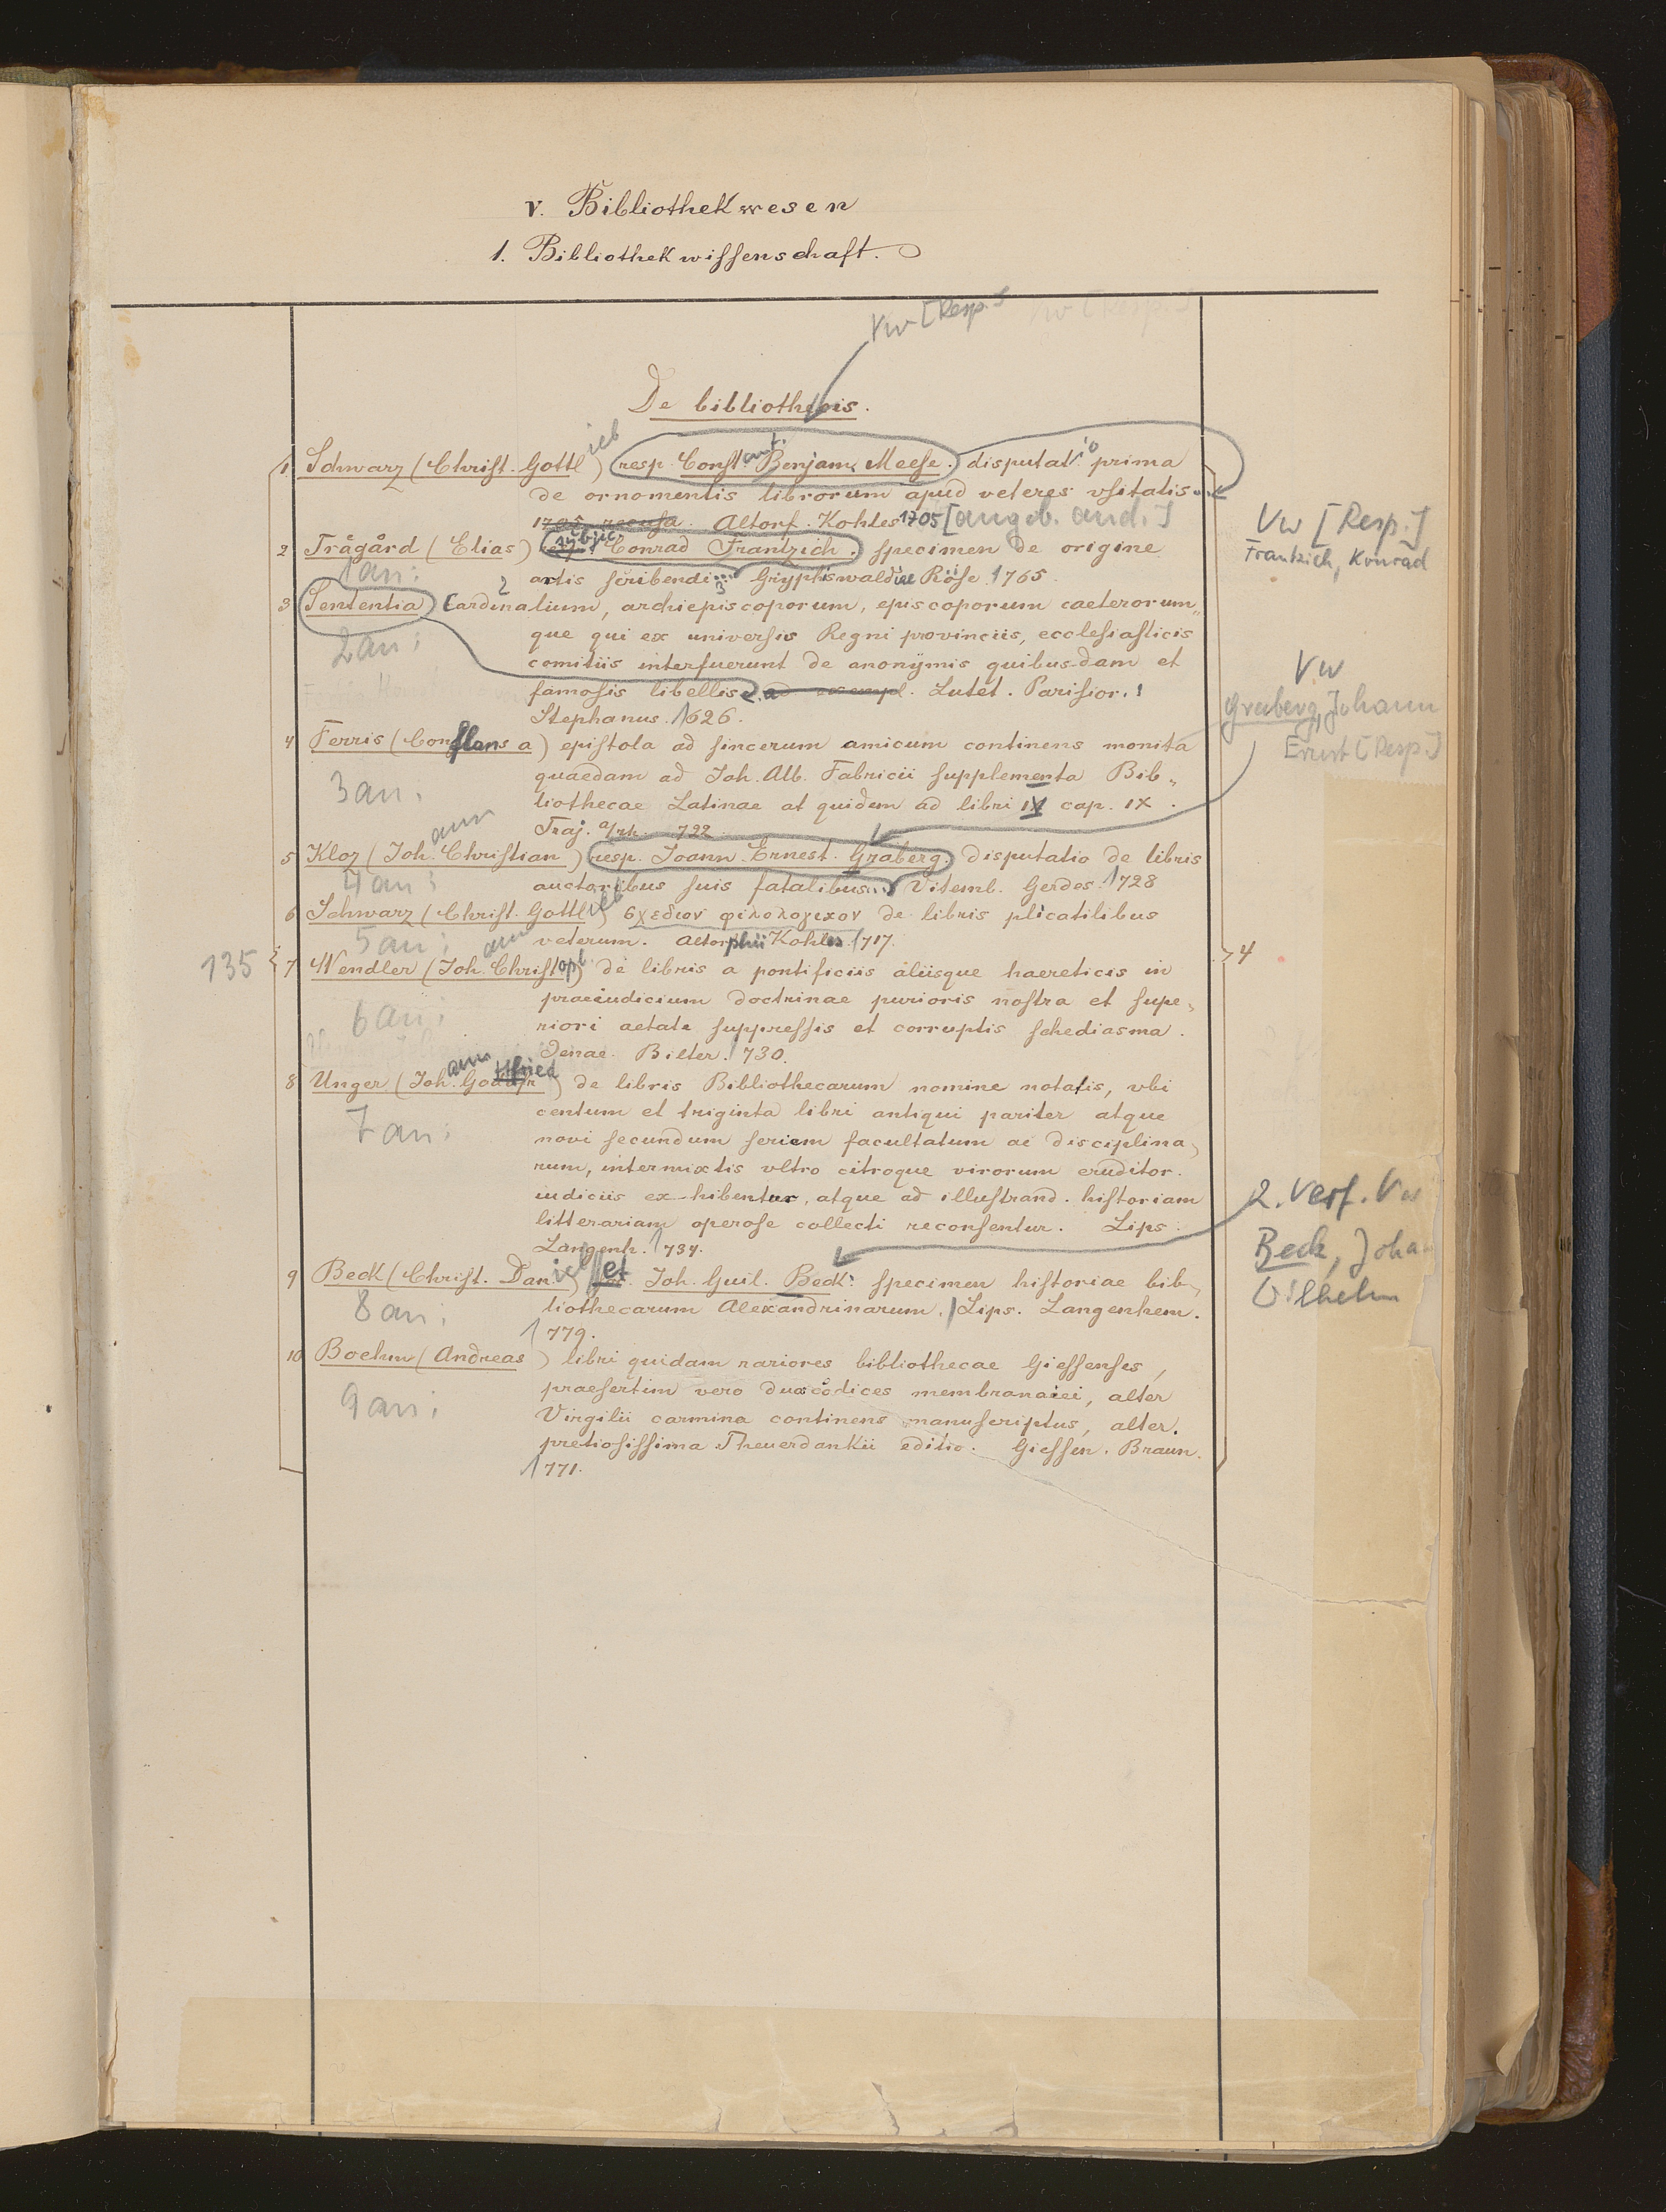 V. Bibliothekwesen
1. Bibliothekwissenschaft.
Vw [Resp.]
De bibliothecis.
1 Schwarz (Christ. Gottlieb) resp. Constant. Benjam. Meese. disputatio prima
de ornomentis librorum apud veteres usitatis...
1705 recusa. Altorf. Kohles 1705 [angeb. and.]
Vw [Resp.]
Frantzich, Konrad
2 Trågård (Elias) subjic. Conrad Frantzich. specimen de origine
1 an:
artis scribendi... Gryphiswaldiae Röse 1765.
3 Sententia Cardinalium, archiepiscoporum, episcoporum caeterorum„
2 an:
que qui ex universis Regni provinciis, ecclesiasticis
comitiis interfuerunt de anonÿmis quibusdam et
famosis libellis. Lutet. Parisior.
Stephanus. 1626.
Vw
Graberg, Johann
Ernst [Resp.]
4 Ferris (Conflans a) epistola ad sincerum amicum continens monita
3 an.
quaedam ad Joh. Alb. Fabricii supplementa Bib„
liothecae Latinae at quidem ad libri IV cap. IX.
Traj. a/rh. 722
5 Kloz (Johann Christian) resp. Joann. Ernest. Graberg. disputatio de libris
4 an:
auctoribus suis fatalibus... Vitemb. Gerdes. 1728
6 Schwarz (Christ. Gottlieb) σχεδιον φιλολογικον de libris plicatilibus
5 an:
veterum. Altorphii Kohles 1717.
135
4
7 Wendler (Johann Christoph) de libris a pontificiis aliisque haereticis in
6 an:
praeiudicium doctrinae purioris nostra et supe„
riori aetate suppressis et corruptis schediasma.
Jenae. Bilter. 1730.
8 Unger (Johann Gottfried) de libris Bibliothecarum nomine notatis, ubi
7 an:
centum et triginta libri antiqui pariter atque
novi secundum seriem facultatum ac disciplina„
rum, intermixtis ultro citroque virorum eruditor.
iudiciis exhibentur, atque ad illustrand. historiam
litterariam operose collecti reconsentur. Lips.
Langenh. 1734.
2. Verf. Vw
Beck, Joha
Wilhelm
9 Beck (Christ. Daniel) et Joh. Guil. Beck. specimen historiae bib„
8 an:
liothecarum Alexandrinarum. Lips. Langenhem.
1779.
10 Boehm (Andreas) libri quidam rariores bibliothecae Giessenses,
9 an:
praesertim vero duo codices membranacei, alter
Virgilii carmina continens manuscriptus, alter.
pretiosissima Theuerdankii editio. Giessen. Braun.
1771.